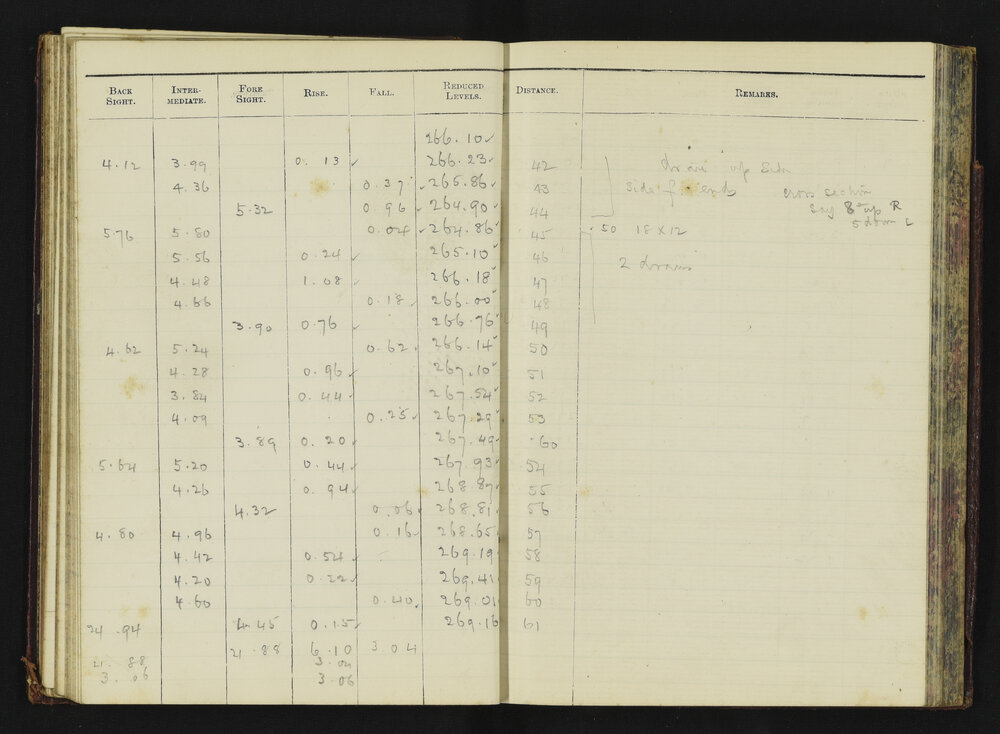 BACK SIGHT. INTER-MEDIATE. FORE SIGHT. RISE. FALL. REDUCED LEVELS. DISTANCE. REMARKS.
266.10✓
4.12 3.99 0.13✓ 266.23✓ 42 up side
4.36 0.37✓ 265.86✓ 43 side ends cross section
5.32 0.96✓ 264.90✓ 44 say 8" up R
5 down L
5.76 5.80 0.04✓ 264.86✓ 45 50 18 x 12
5.56 0.24✓ 265.10✓ 46 2 drains
4.48 1.08✓ 266.18✓ 47
4.66 0.18✓ 266.00✓ 48
3.90 0.76✓ 266.76✓ 49
4.62 5.24 0.62✓ 266.14✓ 50
4.28 0.96✓ 267.10✓ 51
3.84 0.44✓ 267.54✓ 52
4.09 0.25✓ 267.29✓ 53
3.89 0.20✓ 267.49✓ 60
5.64 5.20 0.44✓ 267.93✓ 54
4.26 0.94✓ 268.87✓ 55
4.32 0.06✓ 268.81✓ 56
4.80 4.96 0.16✓ 268.65✓ 57
4.42 0.54✓ 269.19 58
4.20 0.22✓ 269.41 59
4.60 0.40✓ 269.01 60
24.94 4.45 0.15✓ 269.16 61
21.88 6.10 3.04
21.88 3.04
3.06 3.06